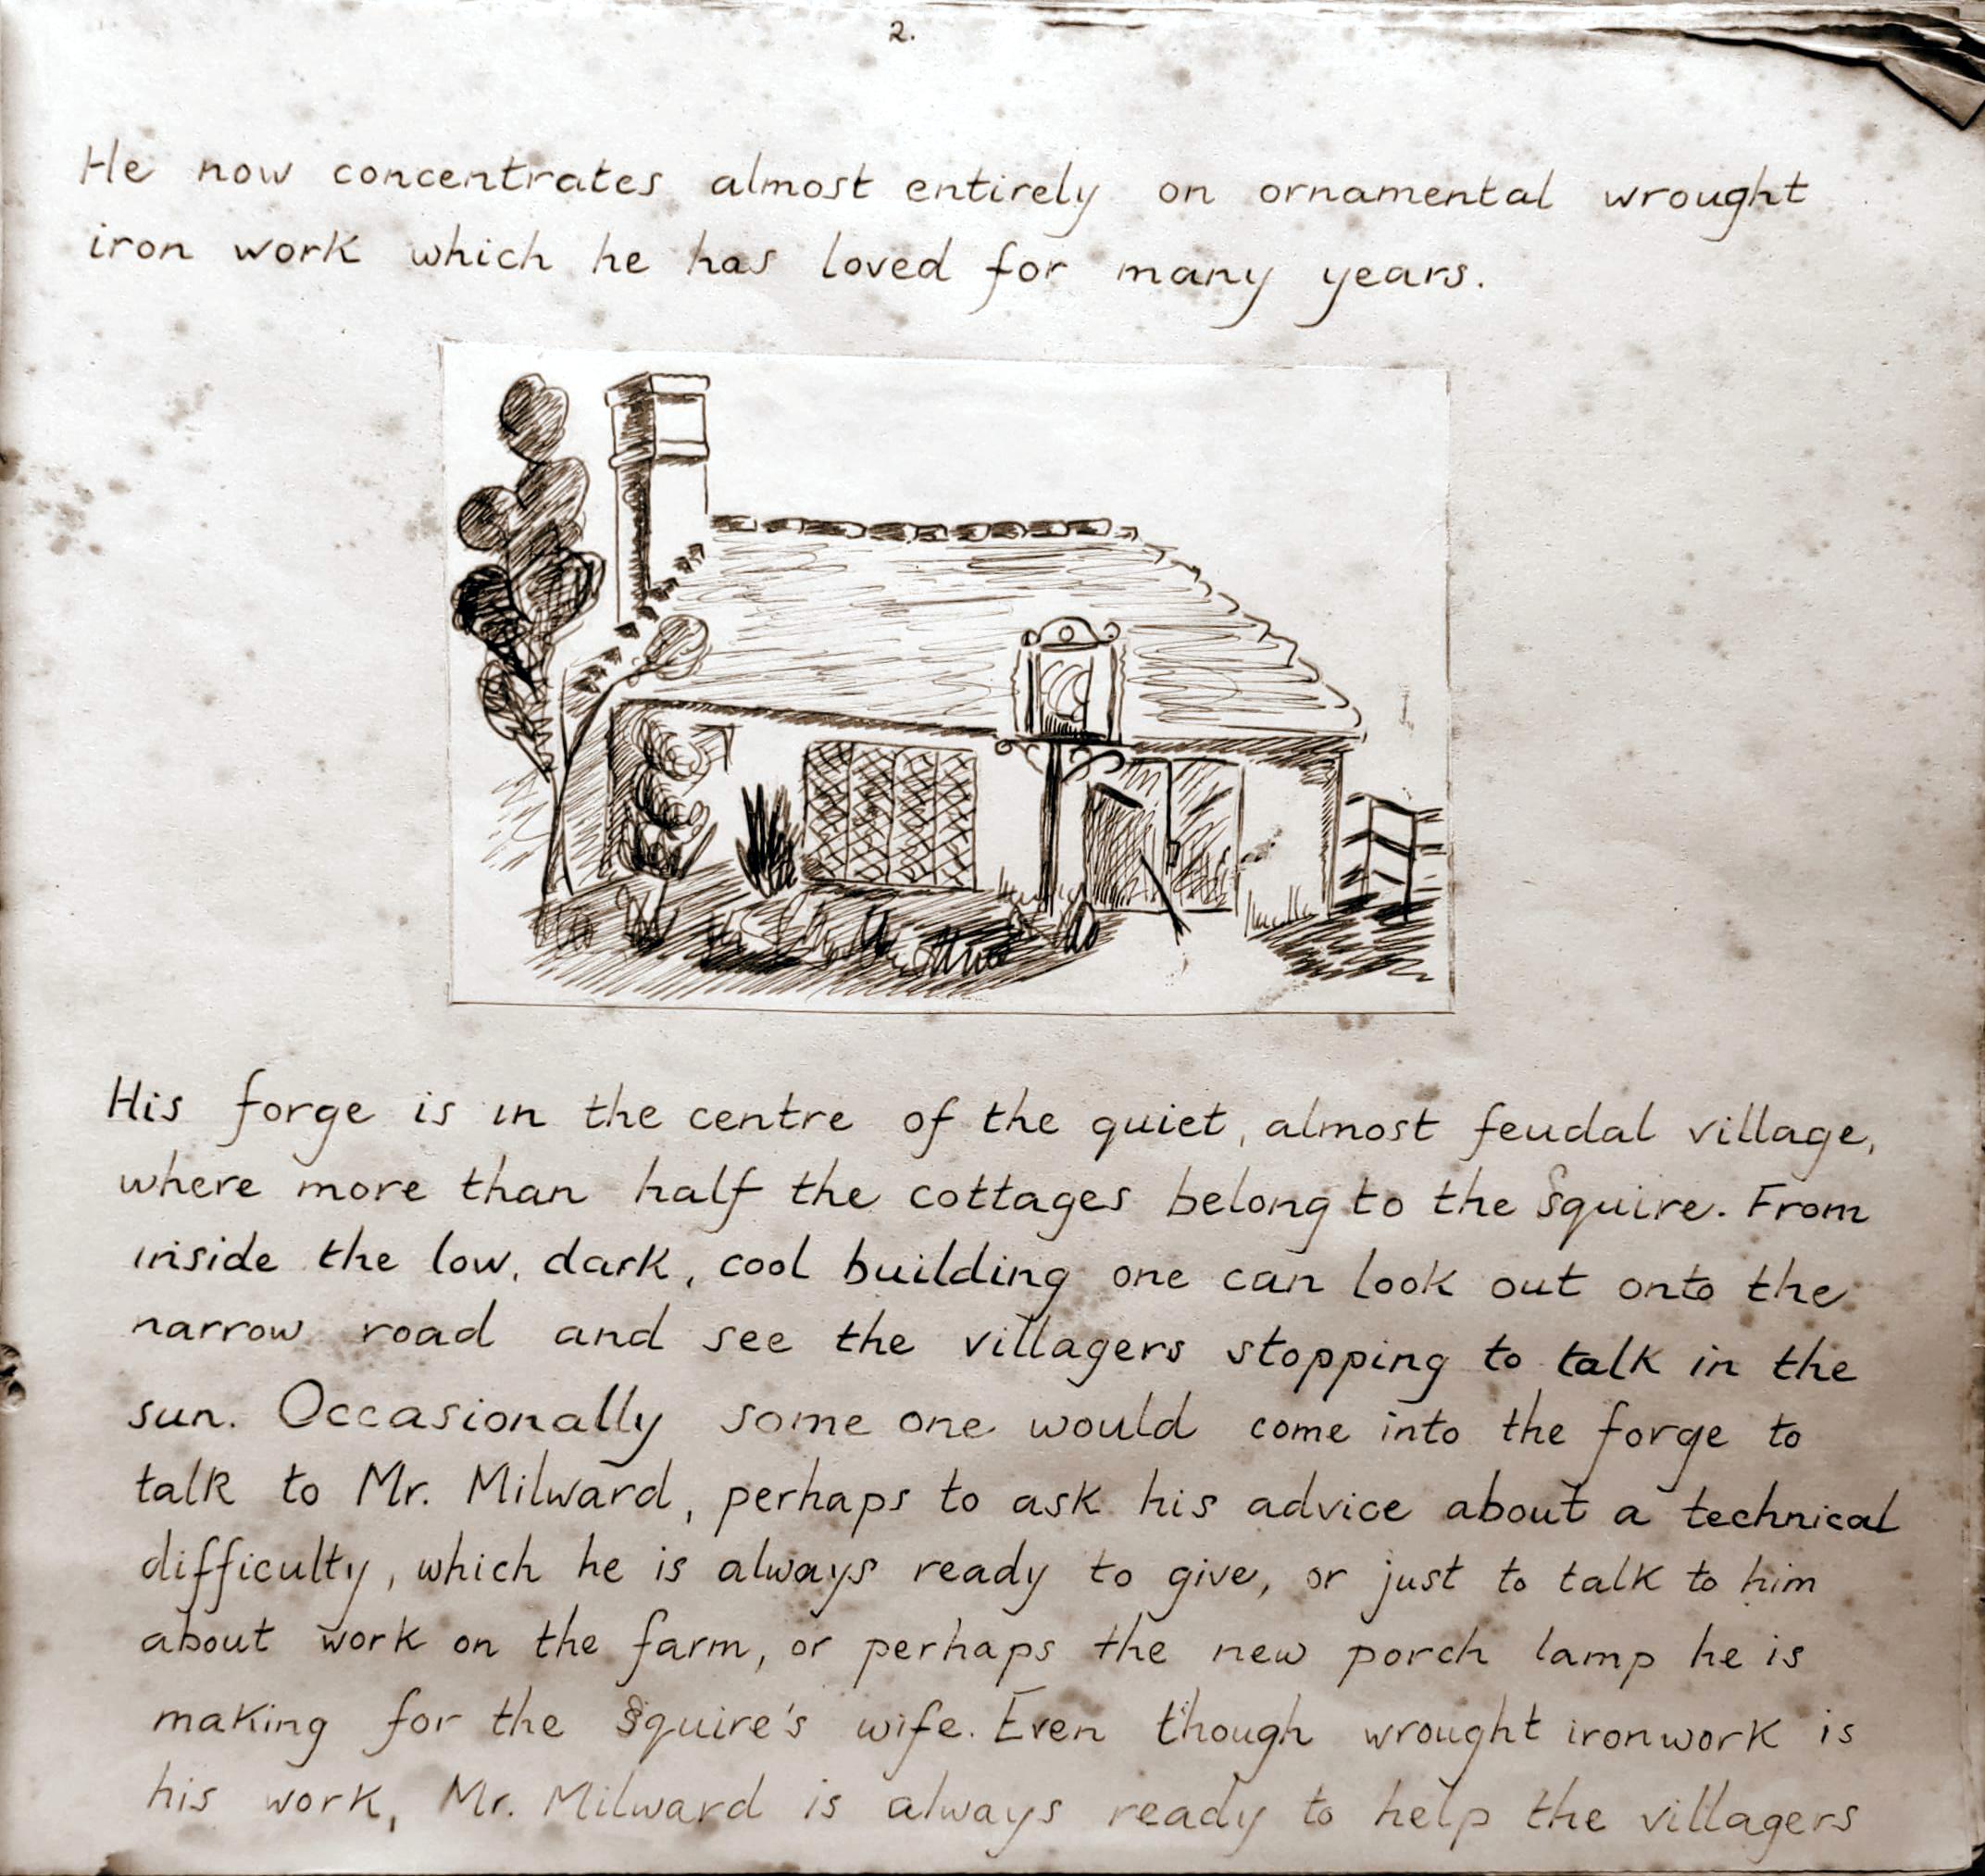 2.
He now concentrates almost entirely on ornamental wrought
iron work which he has loved for many years.
His forge is in the centre of the quiet, almost feudal village,
where more than half the cottages belong to the Squire. From
inside the low, dark, cool building one can look out onto the
narrow road and see the villagers stopping to talk in the
sun. Occasionally some one would come into the forge to
talk to Mr. Milward, perhaps to ask his advice about a technical
difficulty, which he is always ready to give, or just to talk to him
about work on the farm, or perhaps the new porch lamp he is
making for the Squire's wife. Even though wrought ironwork is
his work, Mr. Milward is always ready to help the villagers